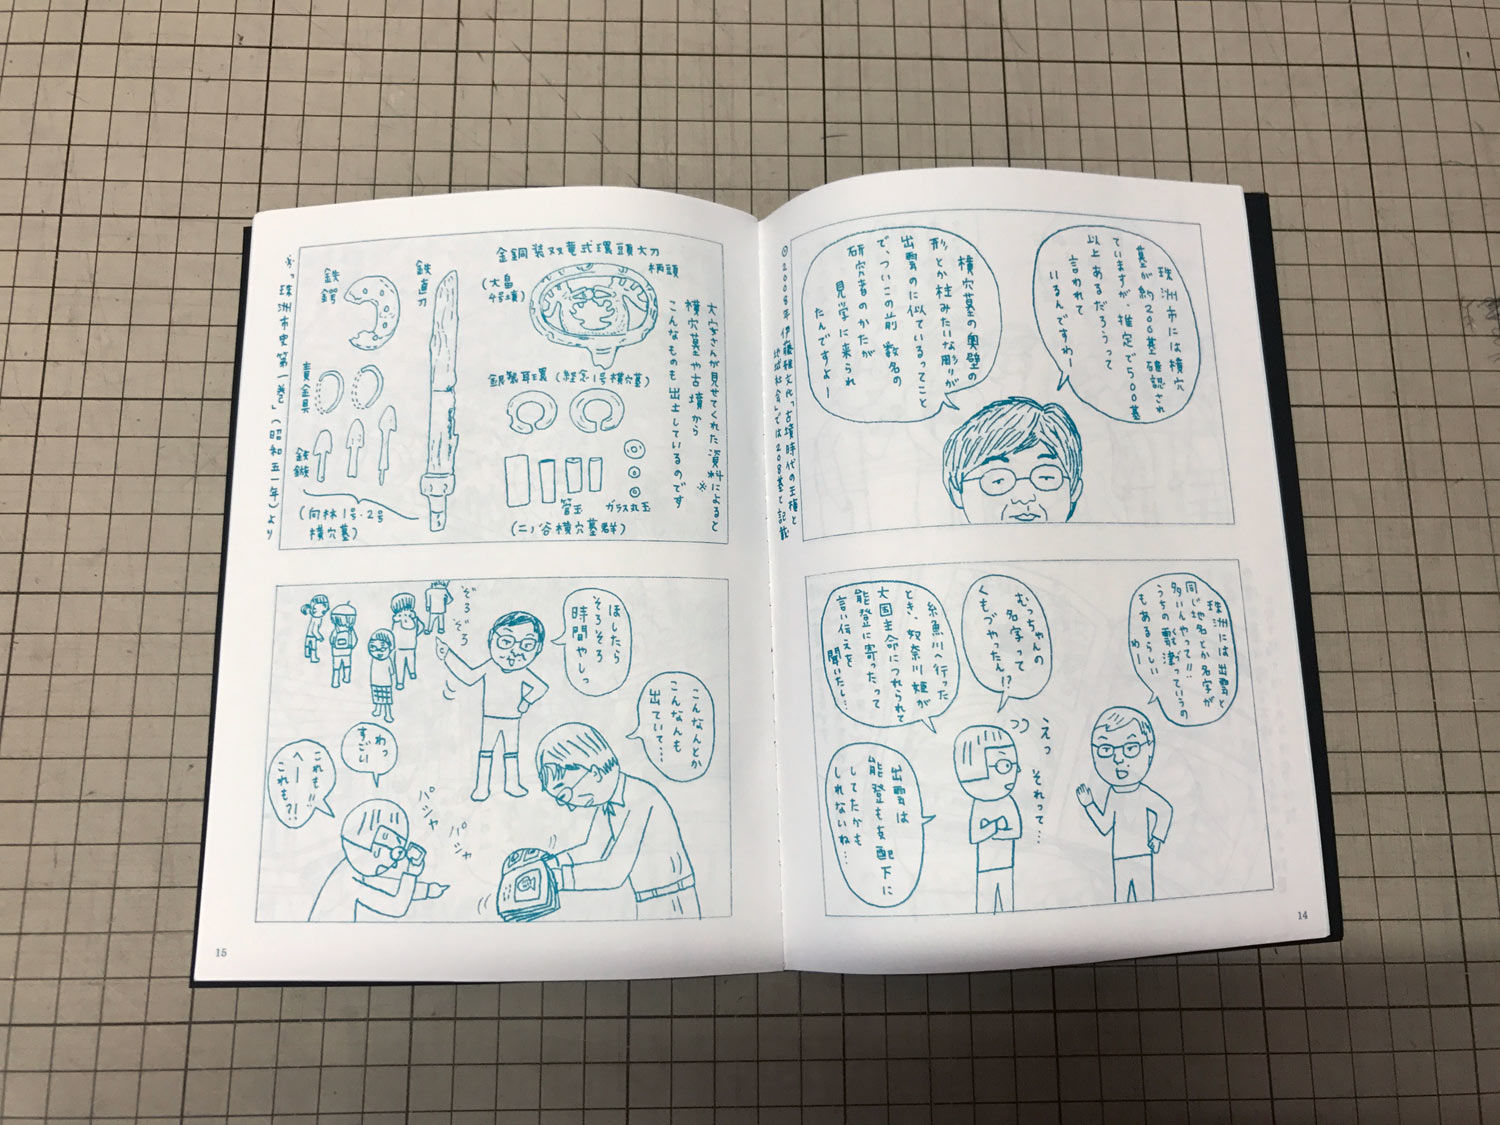 珠洲市には横穴
墓が約200基確認され
ていますが、推定で500基
以上あるだろうって
言われて
いるんですわー
横穴墓の奥壁の
形とか柱みたいな彫りが
出雲のに似ているってこと
で、ついこの前 数名の
研究者のかたが
見学に来られ
たんですよー
2008年 伊藤雅文「古墳時代の王権と
地域社会」では208基と記載
珠洲には出雲と
同じ地名とか名字が
多いんやって!!
うちの雲津っていうの
もあるらしい
わー
むっちゃんの
名字って
くもづやったん!?
えっ それって…
糸魚川へ行った
とき、奴奈川姫が
大国主命につれられて
能登に寄ったって
言い伝えを
聞いたし…
出雲は
能登も支配下に
してたかも
しれないね…
14
大安さんが見せてくれた資料によると※
横穴墓や古墳から
こんなものも出土しているのです
金銅装双竜式環頭大刀
柄頭
(大畠
4号墳)
銀製耳環
管玉
ガラス丸玉
(二ノ谷横穴墓群)
鉄直刀
鉄鍔
責金具
鉄鏃
(向林1号・2号
横穴墓)
※「珠洲市史第一巻」(昭和五一年)より
ほしたら
そろそろ
時間やしっ
ぞろぞろ
こんなんとか
こんなんも
出ていて…
わっ
すごい
これも!!
へーー
これも?!
パシャ
パシャ
15